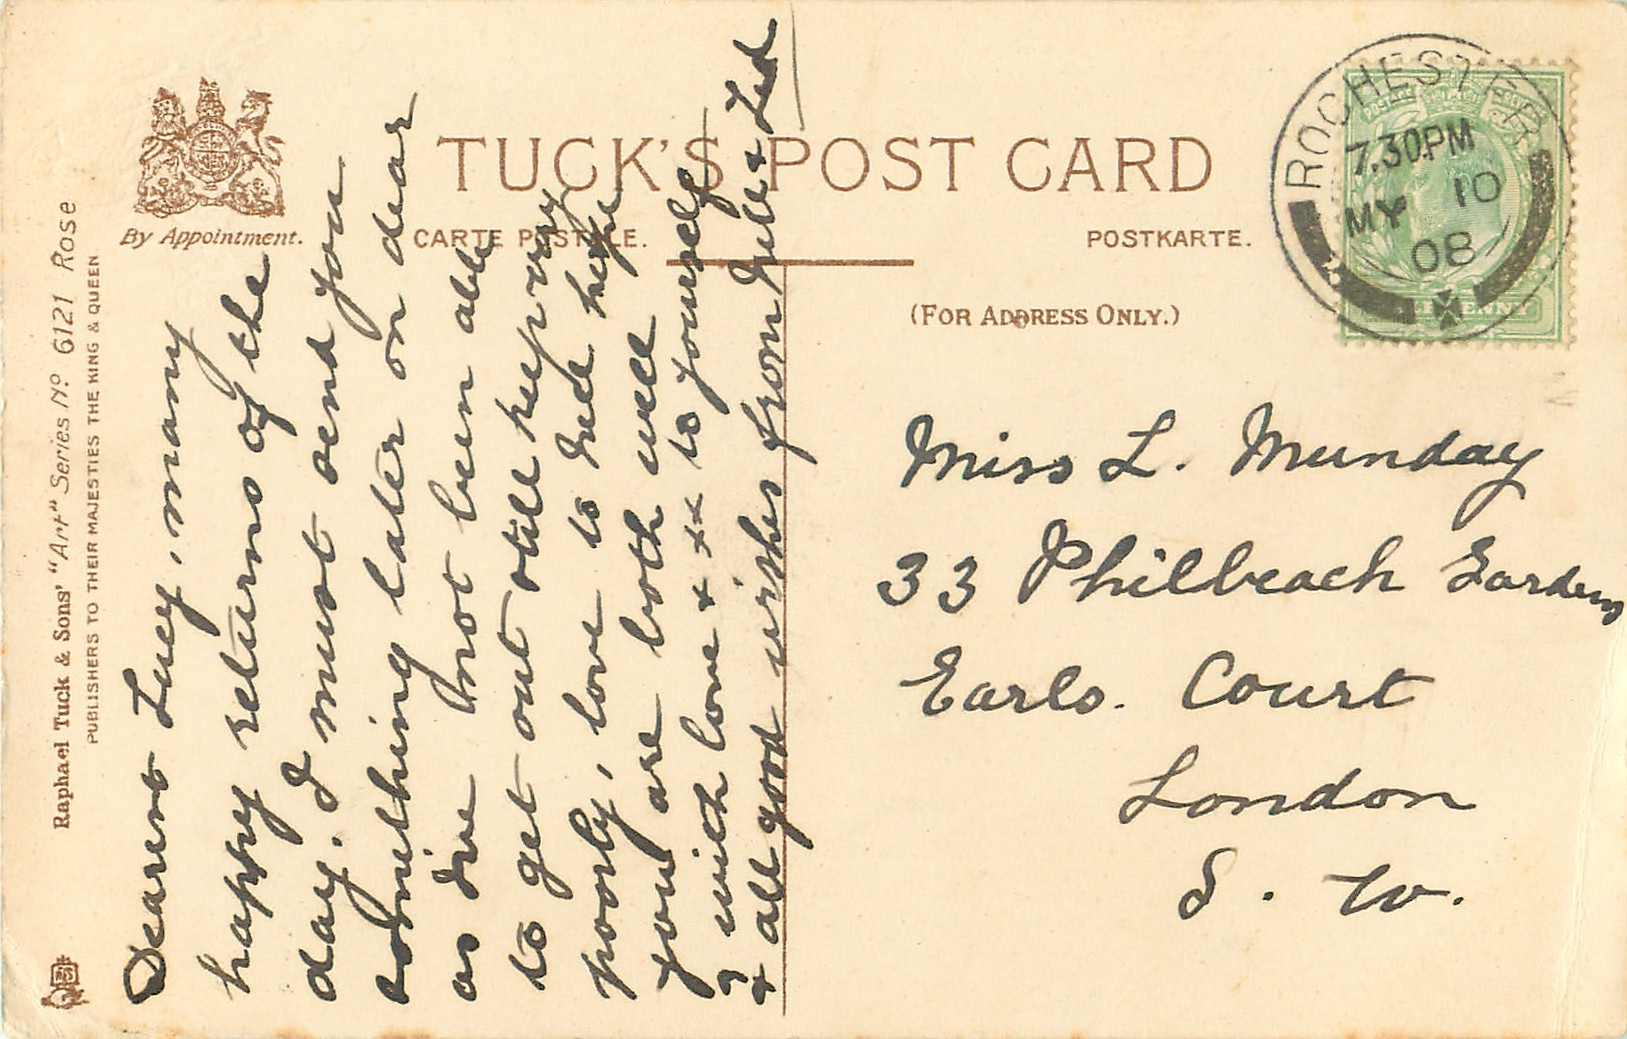 TUCK'S POST CARD
By Appointment.
CARTE POSTALE.
POSTKARTE.
(FOR ADDRESS ONLY.)
Raphael Tuck & Sons' "Art" Series No 6121 Rose
PUBLISHERS TO THEIR MAJESTIES THE KING & QUEEN
ROCHESTER
7.30PM
MY 10
08
Dearest Lucy, many
happy returns of the
day. I must send you
something later on dear
as I've not been able
to get out still keep very
poorly, love to hope
you are both well
with love x x x to yourself
+ all good wishes from &
Miss L. Munday
33 Philbeach Gardens
Earls. Court
London
S. W.